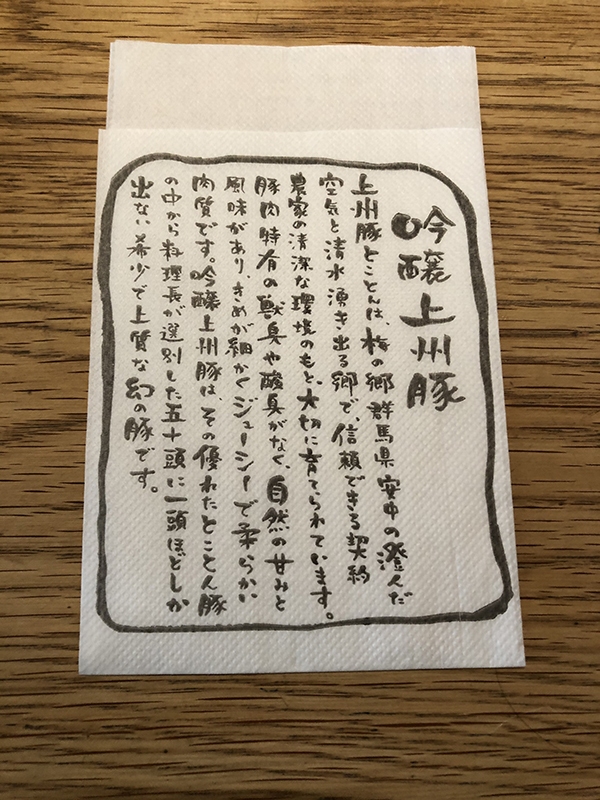 吟醸上州豚
上州豚とことんは、梅の郷群馬県安中の澄んだ
空気と清水湧き出る郷で、信頼できる契約
農家の清潔な環境のもと、大切に育てられています。
豚肉特有の獣臭や酸臭がなく、自然の甘みと
風味があり、きめが細かくジューシーで柔らかい
肉質です。吟醸上州豚は、その優れたとことん豚
の中から料理長が選別した五十頭に一頭ほどしか
出ない希少で上質な幻の豚です。